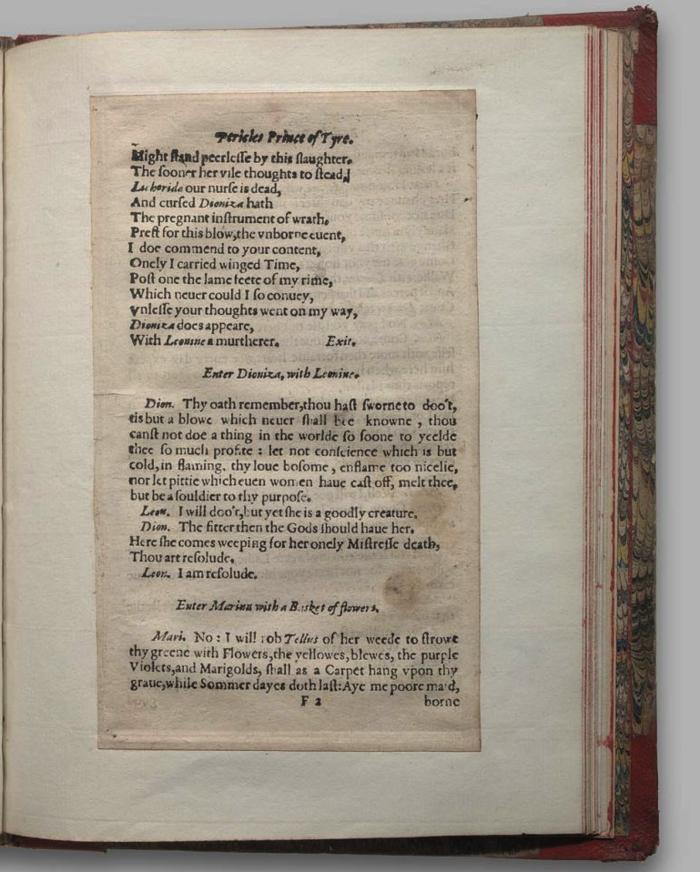 Pericles Prince of Tyre.
Might stand peerlesse by this slaughter.
The sooner her vile thoughts to stead,
Lichorida our nurse is dead,
And cursed Dioniza hath
The pregnant instrument of wrath.
Prest for this blow,the vnborne euent,
I doe commend to your content,
Onely I carried winged Time,
Post one the lame feete of my rime,
Which neuer could I so conuey,
Vnlesse your thoughts went on my way,
Dioniza does appeare,
With Leonine a murtherer. Exit.
Enter Dioniza, with Leonine.
Dion. Thy oath remember,thou hast sworne to doo't,
tis but a blowe which neuer shall bee knowne , thou
canst not doe a thing in the worlde so soone to yeelde
thee so much profite : let not conscience which is but
cold,in flaming, thy loue bosome , enflame too nicelie,
nor let pittie which euen women haue cast off, melt thee,
but be a souldier to thy purpose.
Leon. I will doo't,but yet she is a goodly creature.
Dion. The fitter then the Gods should haue her.
Here she comes weeping for her onely Mistresse death,
Thou art resolude.
Leon. I am resolude.
Enter Marina with a Basket of flowers.
Mari. No : I will rob Tellus of her weede to strowe
thy greene with Flowers,the yellowes,blewes, the purple
Violets,and Marigolds, shall as a Carpet hang vpon thy
graue,while Sommer dayes doth last:Aye me poore maid,
F 2 borne